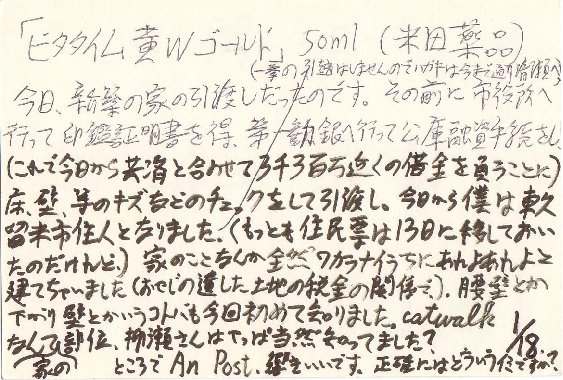 「ビタタイム黄Wゴールド」50ml(米田薬品)
(一家の引越はしませんのでハガキは今まで通り
今日、新築の家の引渡しだったのです。その前に市役所へ
行って印鑑証明書を得、第一勧銀へ行って公庫融資手続をし、
(これで今日から共済と合わせて3千3百万近くの借金を負うことに)
床、壁、等のキズなどのチェックをして引渡し、今日から僕は東久
留米市住人となりました。(もっとも住民票は13日に移しておい
たのだけれど。)家のことなんか全然ワカラナイうちにあれよあれよと
建てちゃいました(おやじの遺した土地の税金の関係で)。腰壁とか
下がり壁とかいうコトバも今回初めて知りました。catwalk
なんて部位、柳瀬さんはやっぱ当然知ってました? 1/18.
(家の) ところで An Post、響きいいです。正確にはどういう仕事ですか?